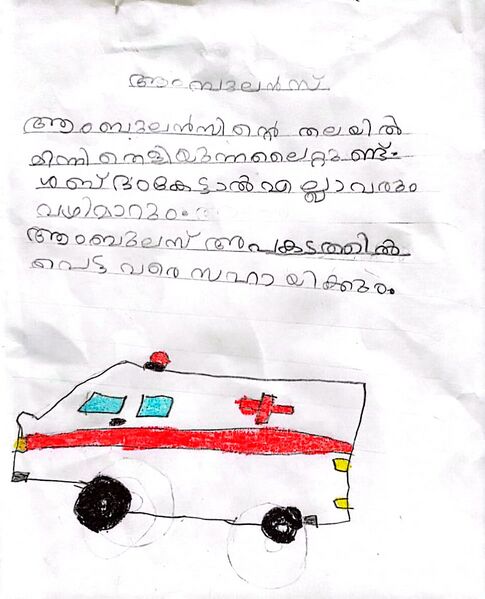 ആംബുലൻസ്
ആംബുലൻസിന്റെ തലയിൽ
മിന്നി തെളിയുന്നലൈറ്റുണ്ട്.
ശബ്ദംകേട്ടാൽഎല്ലാവരും
വഴിമാറും.
ആംബുലസ് അപകടത്തിൽ
പെട്ട വരെ സഹായിക്കും.